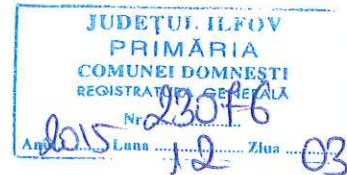 JUDEȚUL ILFOV
PRIMĂRIA
COMUNEI DOMNEȘTI
REGISTRATURA GENERALĂ
Nr. 23076
Anul 2015 Luna 12 Ziua 03